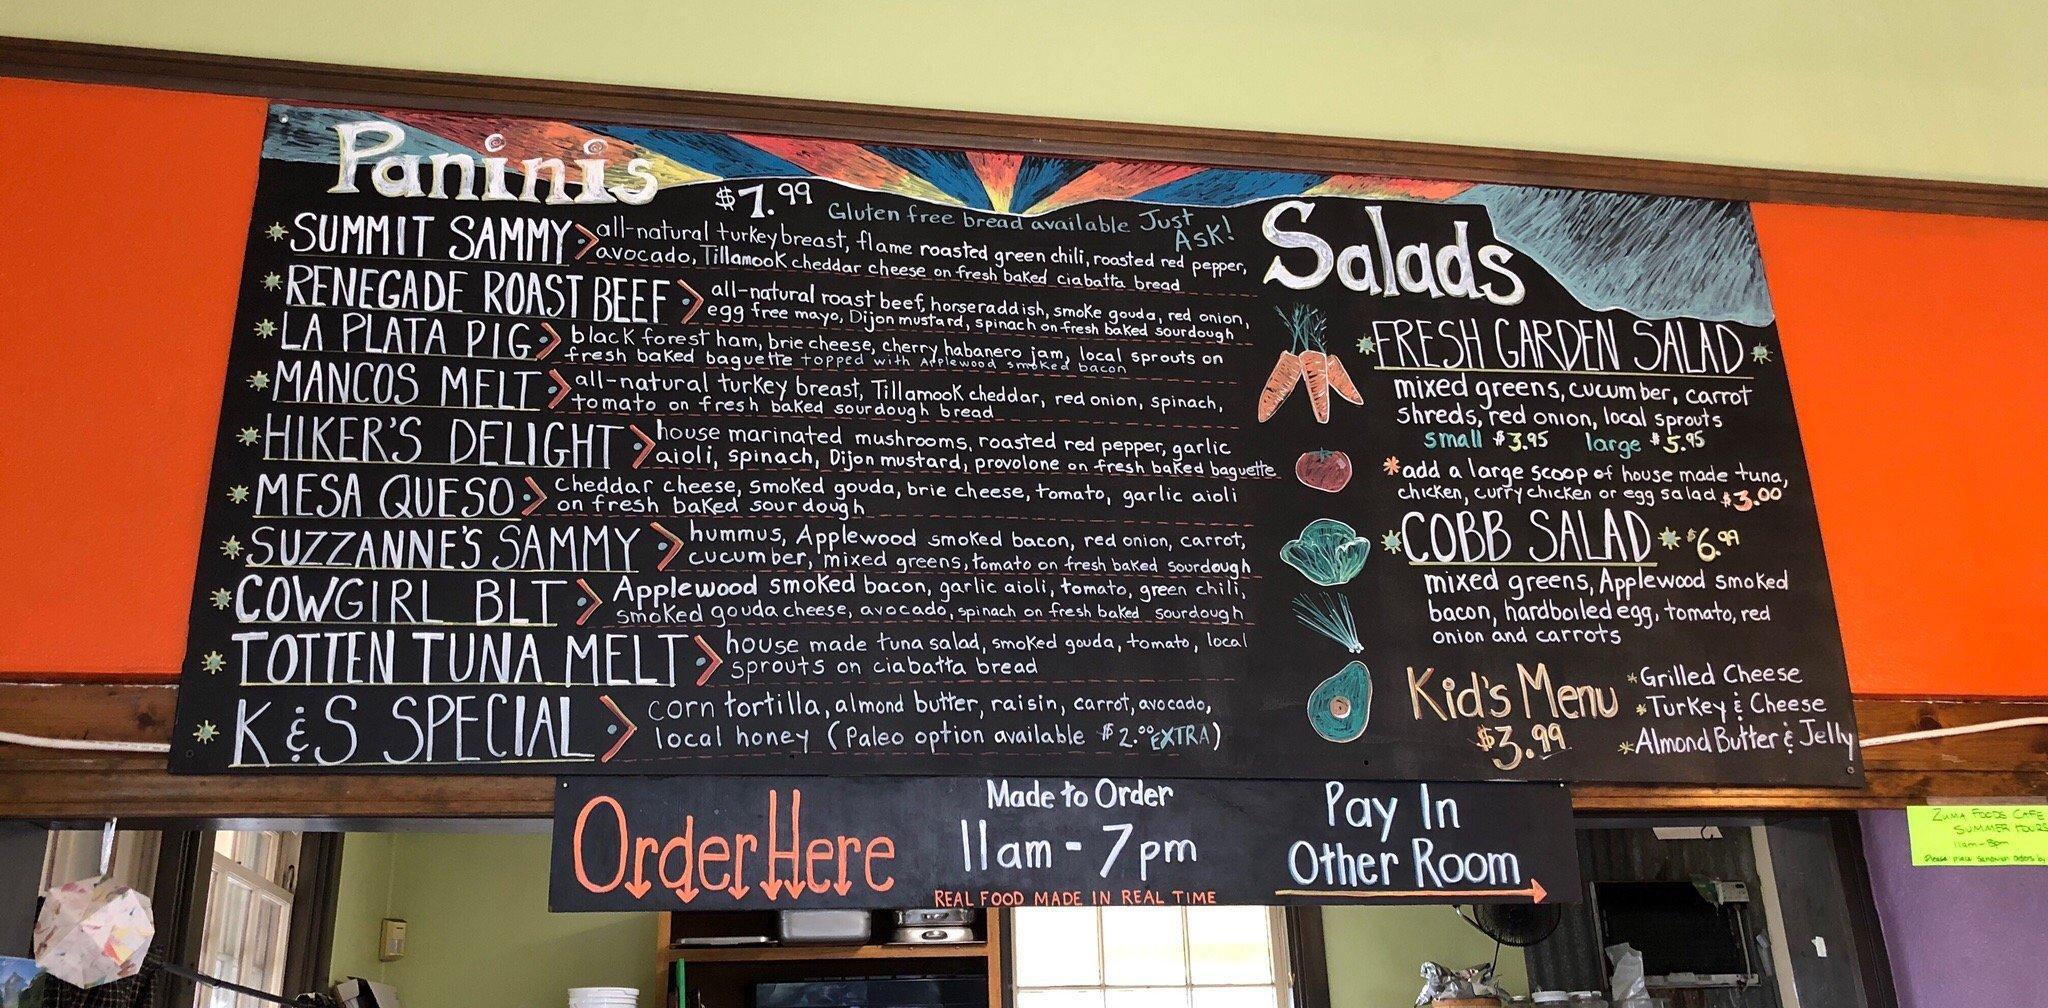 Paninis $7.99
Gluten free bread available Just Ask!
SUMMIT SAMMY all-natural turkey breast, flame roasted green chili, roasted red pepper,
avocado, Tillamook cheddar cheese on fresh baked ciabatta bread
RENEGADE ROAST BEEF all-natural roast beef, horseraddish, smoke gouda, red onion,
egg free mayo, Dijon mustard, spinach on fresh baked sourdough
LA PLATA PIG black forest ham, brie cheese, cherry habanero jam, local sprouts on
fresh baked baguette topped with Applewood smoked bacon
MANCOS MELT all-natural turkey breast, Tillamook cheddar, red onion, spinach,
tomato on fresh baked sourdough bread
HIKER'S DELIGHT house marinated mushrooms, roasted red pepper, garlic
aioli, spinach, Dijon mustard, provolone on fresh baked baguette
MESA QUESO cheddar cheese, smoked gouda, brie cheese, tomato, garlic aioli
on fresh baked sourdough
SUZZANNE'S SAMMY hummus, Applewood smoked bacon, red onion, carrot,
cucumber, mixed greens, tomato on fresh baked sourdough
COWGIRL BLT Applewood smoked bacon, garlic aioli, tomato, green chili,
smoked gouda cheese, avocado, spinach on fresh baked sourdough
TOTTEN TUNA MELT house made tuna salad, smoked gouda, tomato, local
sprouts on ciabatta bread
K & S SPECIAL corn tortilla, almond butter, raisin, carrot, avocado,
local honey (Paleo option available $2.00 EXTRA)
Salads
FRESH GARDEN SALAD
mixed greens, cucumber, carrot
shreds, red onion, local sprouts
small $3.95 large $5.95
*add a large scoop of house made tuna,
chicken, curry chicken or egg salad $3.00
COBB SALAD $6.99
mixed greens, Applewood smoked
bacon, hardboiled egg, tomato, red
onion and carrots
Kid's Menu
$3.99
*Grilled Cheese
*Turkey & Cheese
*Almond Butter & Jelly
Order Here
Made to Order
11am - 7pm
REAL FOOD MADE IN REAL TIME
Pay In
Other Room
ZUMA FOODS CAFE
SUMMER HOURS
11am-8pm
Please place sandwich orders by